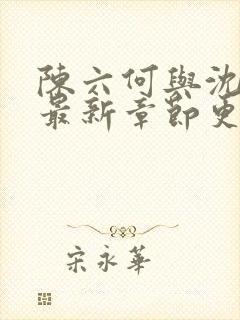 陳六何與沈
最新章節更
宋永華